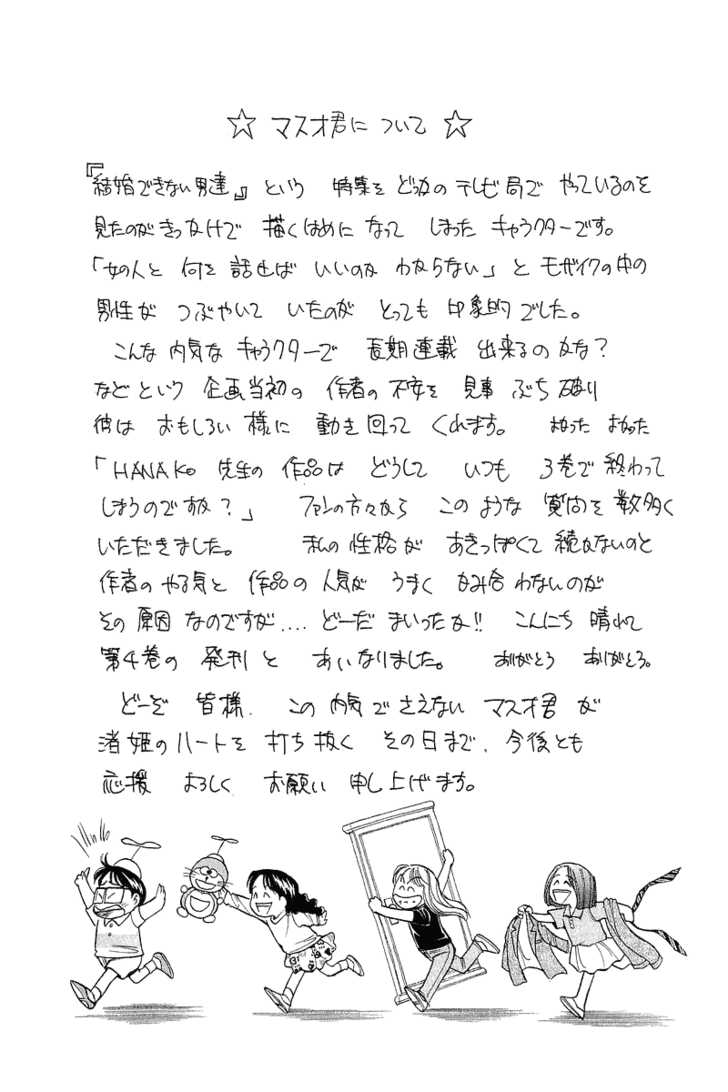 ☆ マスオ君に ついて ☆
『結婚できない男達』 という 特集を どっかの テレビ局で やっているのを
見たのが きっかけで 描くはめに なって しまった キャラクターです。
「女の人と 何を 話せば いいのか わからない」と モザイクの中の
男性が つぶやいて いたのが とっても 印象的でした。
こんな 内気な キャラクターで 長期連載 出来るのかな？
などという 企画当初の 作者の 不安を 見事 ぶち破り
彼は おもしろい 様に 動き回って くれます。 よかった よかった
「HANAKO 先生の 作品は どうして いつも 3巻で 終わって
しまうのですか？」 ファンの方々から このような 質問を 数多く
いただきました。 私の 性格が あきっぽくて 続かないのと
作者の やる気と 作品の 人気が うまく かみ合わないのが
その 原因 なのですが.... どーだ まいったか!! こんにち 晴れて
第4巻の 発刊と あいなりました。 ありがとう ありがとう。
どーぞ 皆様、 この 内気で さえない マスオ君 が
渚姫のハートを 打ち抜く その日まで、今後とも
応援 よろしく お願い 申し上げます。